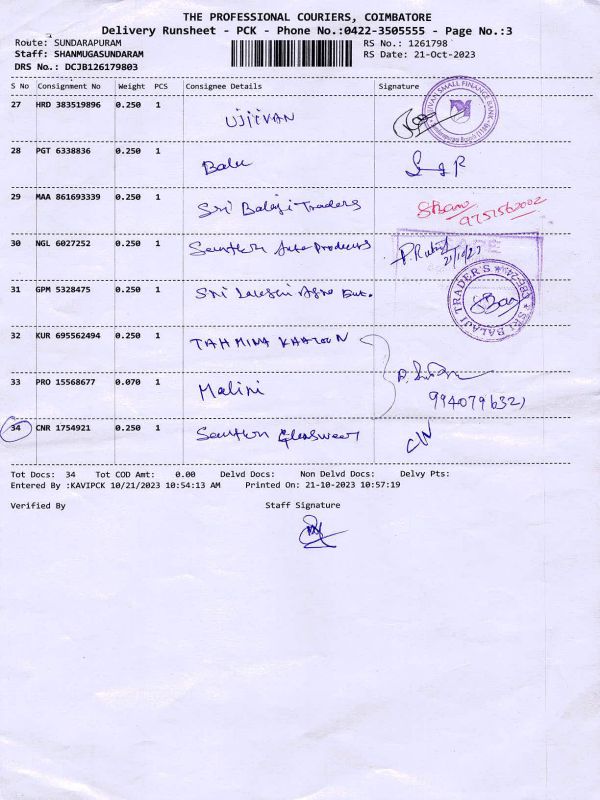 THE PROFESSIONAL COURIERS, COIMBATORE
Delivery Runsheet - PCK - Phone No.:0422-3505555 - Page No.:3
Route: SUNDARAPURAM RS No.: 1261798
Staff: SHANMUGASUNDARAM RS Date: 21-Oct-2023
DRS No.: DCJB126179803
S No Consignment No Weight PCS Consignee Details Signature
27 HRD 383519896 0.250 1 UJJIVAN
UJJIVAN SMALL FINANCE BANK
28 PGT 6338836 0.250 1 Balu
29 MAA 861693339 0.250 1 Sri Balaji Traders
9751562002
30 NGL 6027252 0.250 1 Southern Auto Products
21/10/23
31 GPM 5328475 0.250 1 Sri
SRI BALAJI TRADER'S
32 KUR 695562494 0.250 1 TAHMINA KHATOON
33 PRO 15568677 0.070 1 Malini
34 CNR 1754921 0.250 1 Southern
Tot Docs: 34 Tot COD Amt: 0.00 Delvd Docs: Non Delvd Docs: Delvy Pts:
Entered By :KAVIPCK 10/21/2023 10:54:13 AM Printed On: 21-10-2023 10:57:19
Verified By Staff Signature